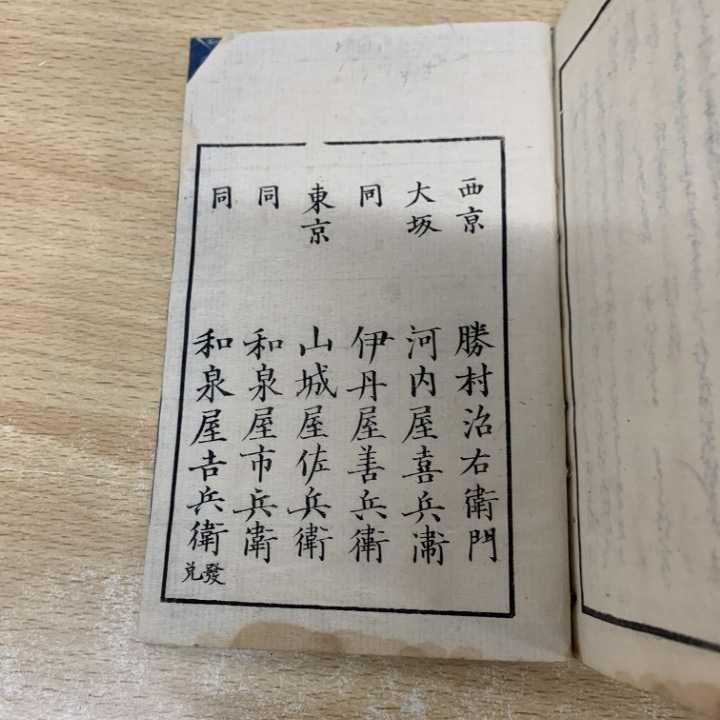 西京 勝村治右衛門
大坂 河内屋喜兵衛
同 伊丹屋善兵衛
東京 山城屋佐兵衛
同 和泉屋市兵衛
同 和泉屋吉兵衛
發兌